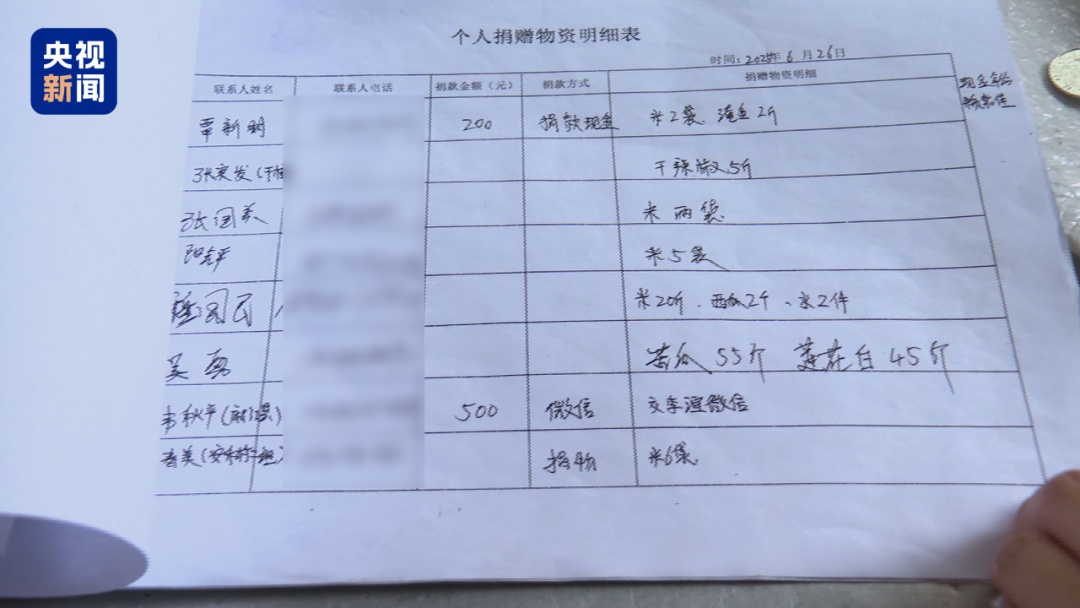 央视
新闻
个人捐赠物资明细表
时间：2025年6月26日
联系人姓名 联系人电话 捐款金额（元） 捐款方式 捐赠物资明细
覃新明 200 捐款现金 米2袋 淹鱼2斤
干辣椒5斤
张国美 米两袋
米5袋
国民 米20斤、西瓜2个、水2件
吴勇 苦瓜55斤 莲花白45斤
韦秋平 500 微信 交李谊微信
捐物 米6袋